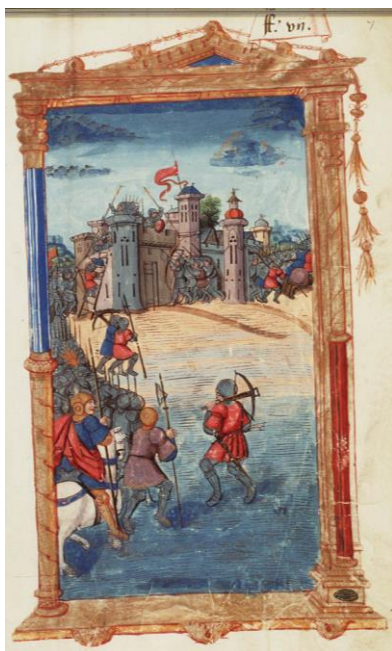 ff. vii.
7